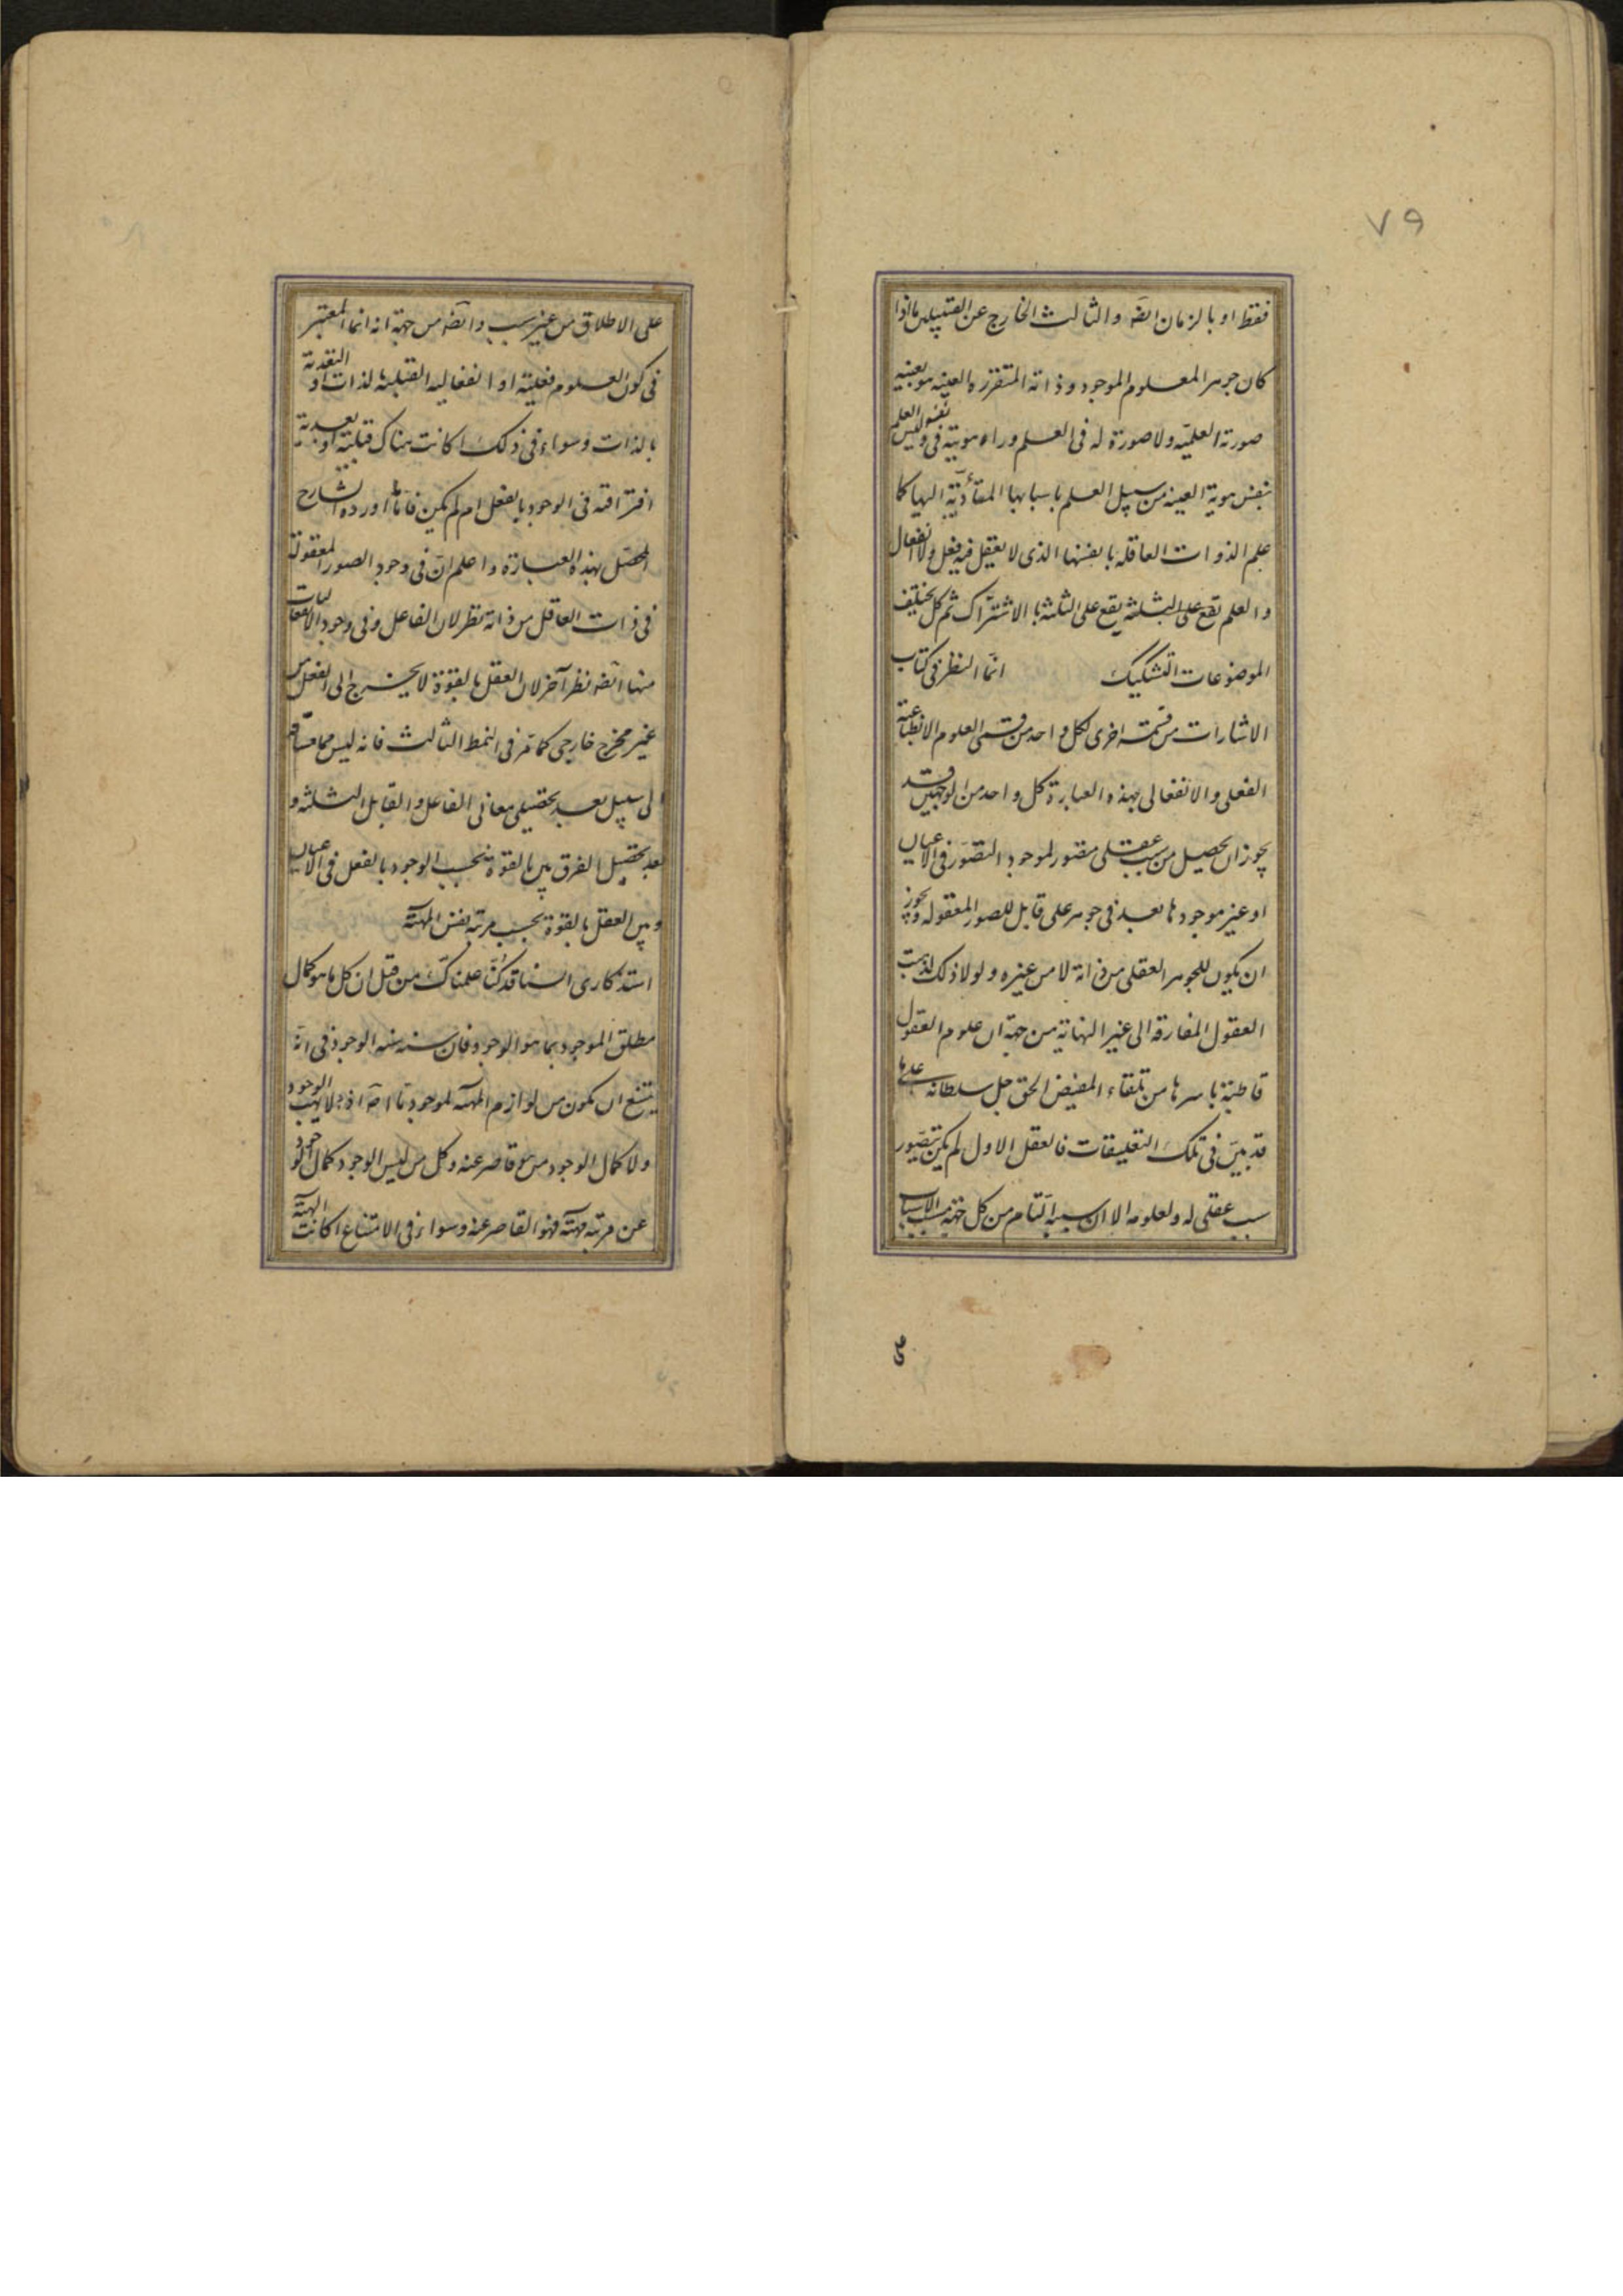 ٧٩
فقط او بالزمان ايضه والثالث الخارج عن القبيلين ما اذا
كان جوهر المعلوم الموجود وذاته المتقررة العينيه هو بعينه
صورته العلميّه ولا صورة له فى العلم وراء هويته فى نفسه وليس العلم
بنفس هويته العينيه من سبيل العلم باسبابها المتأدّية اليها كما
علم الذوات العاقله بانفسها الذى لا يعقل فيه فعل ولا انفعال
والعلم يقع على الثلثه يقع على الثلثه بالاشتراك ثم كل يختلف
الموضوعات التشكيك انّما النظر فى كتاب
الاشارات من قسمته اخرى لكل واحد من قسمى العلوم الانطباعية
الفعلى والانفعالى بهذه العبارة كل واحد من الوجهين قد
يجوز ان يحصل من سبب عقلى مصور لموجود التصوّر فى الاعيان
او غير موجودها بعد فى جوهر على قابل للصور المعقوله ويجوز
ان يكون للجوهر العقلى من ذاته لا من غيره ولولا ذلك لذهبت
العقول المفارقه الى غير النهاية من جهة ان علوم العقول
قاطبة باسرها من تلقاء المفيض الحق جل سلطانه على ما
قد بيّن فى تلك التعليقات فالعقل الاول لم يكن يتصور
سبب عقلى له ولعلومه الا ان سببه التام من كل جهة مسبب الاسباب
على الاطلاق من غير سبب وايضه من جهة انه انما المعتبر
فى كون العلوم فعليّة او انفعاليه القبليه بالذات او التقدية
بالذات وسواء فى ذلك اكانت هناك قبلية او بعدية
افتراقه فى الوجود بالفعل ام لم يكن فاذا ما اورده الشارح
المحصّل بهذه العبارة واعلم انّ فى وجود الصور المعقولة
فى ذات العاقل من ذاته نظر لان الفاعل وفى وجود الانفعاليات
منها ايضه نظر آخر لان العقل بالقوة لا يخرج الى الفعل من
غير مخرج خارجى كما مر فى النمط الثالث فانه ليس مما مساقه
الى سبيل بعد تحصيل معانى الفاعل والقابل الثلثه و
بعد تحصيل الفرق بين بالقوة بحسب الوجود بالفعل فى الاعيان
وبين العقل بالقوة بحسب مرتبه نفس المهيّة
استذكارى السنا قد كنّا علمناك من قبل ان كل ما هو كمال
مطلق الموجود بما هو الوجود فان سنته سنه الوجود فى انه
يمتنع ان يكون من لوازم المهيه لموجود ما اصلا اذ لا يهب الوجود
ولا كمال الوجود من هو قاصر عنه وكل من ليس الوجود كمال الوجود
عن مرتبه مهيّته فهو القاصر عنه وسواء فى الامتناع اكانت المهيّة